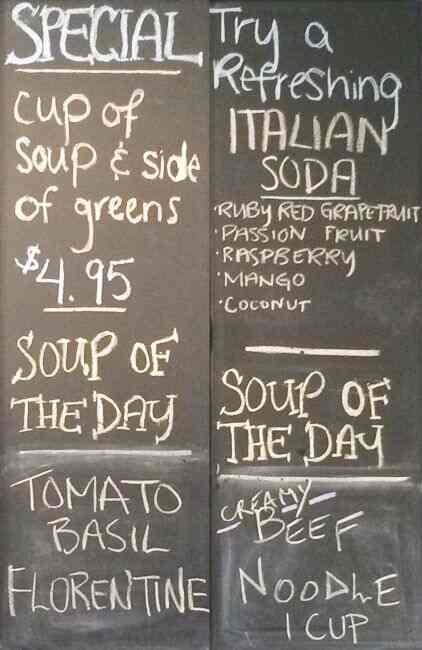 SPECIAL
cup of
soup & side
of greens
$4.95
SOUP OF
THE DAY
TOMATO
BASIL
FLORENTINE
Try a
Refreshing
ITALIAN
SODA
·RUBY RED GRAPEFRUIT
·PASSION FRUIT
·RASPBERRY
·MANGO
·COCONUT
SOUP OF
THE DAY
CREAMY
BEEF
NOODLE
1 CUP